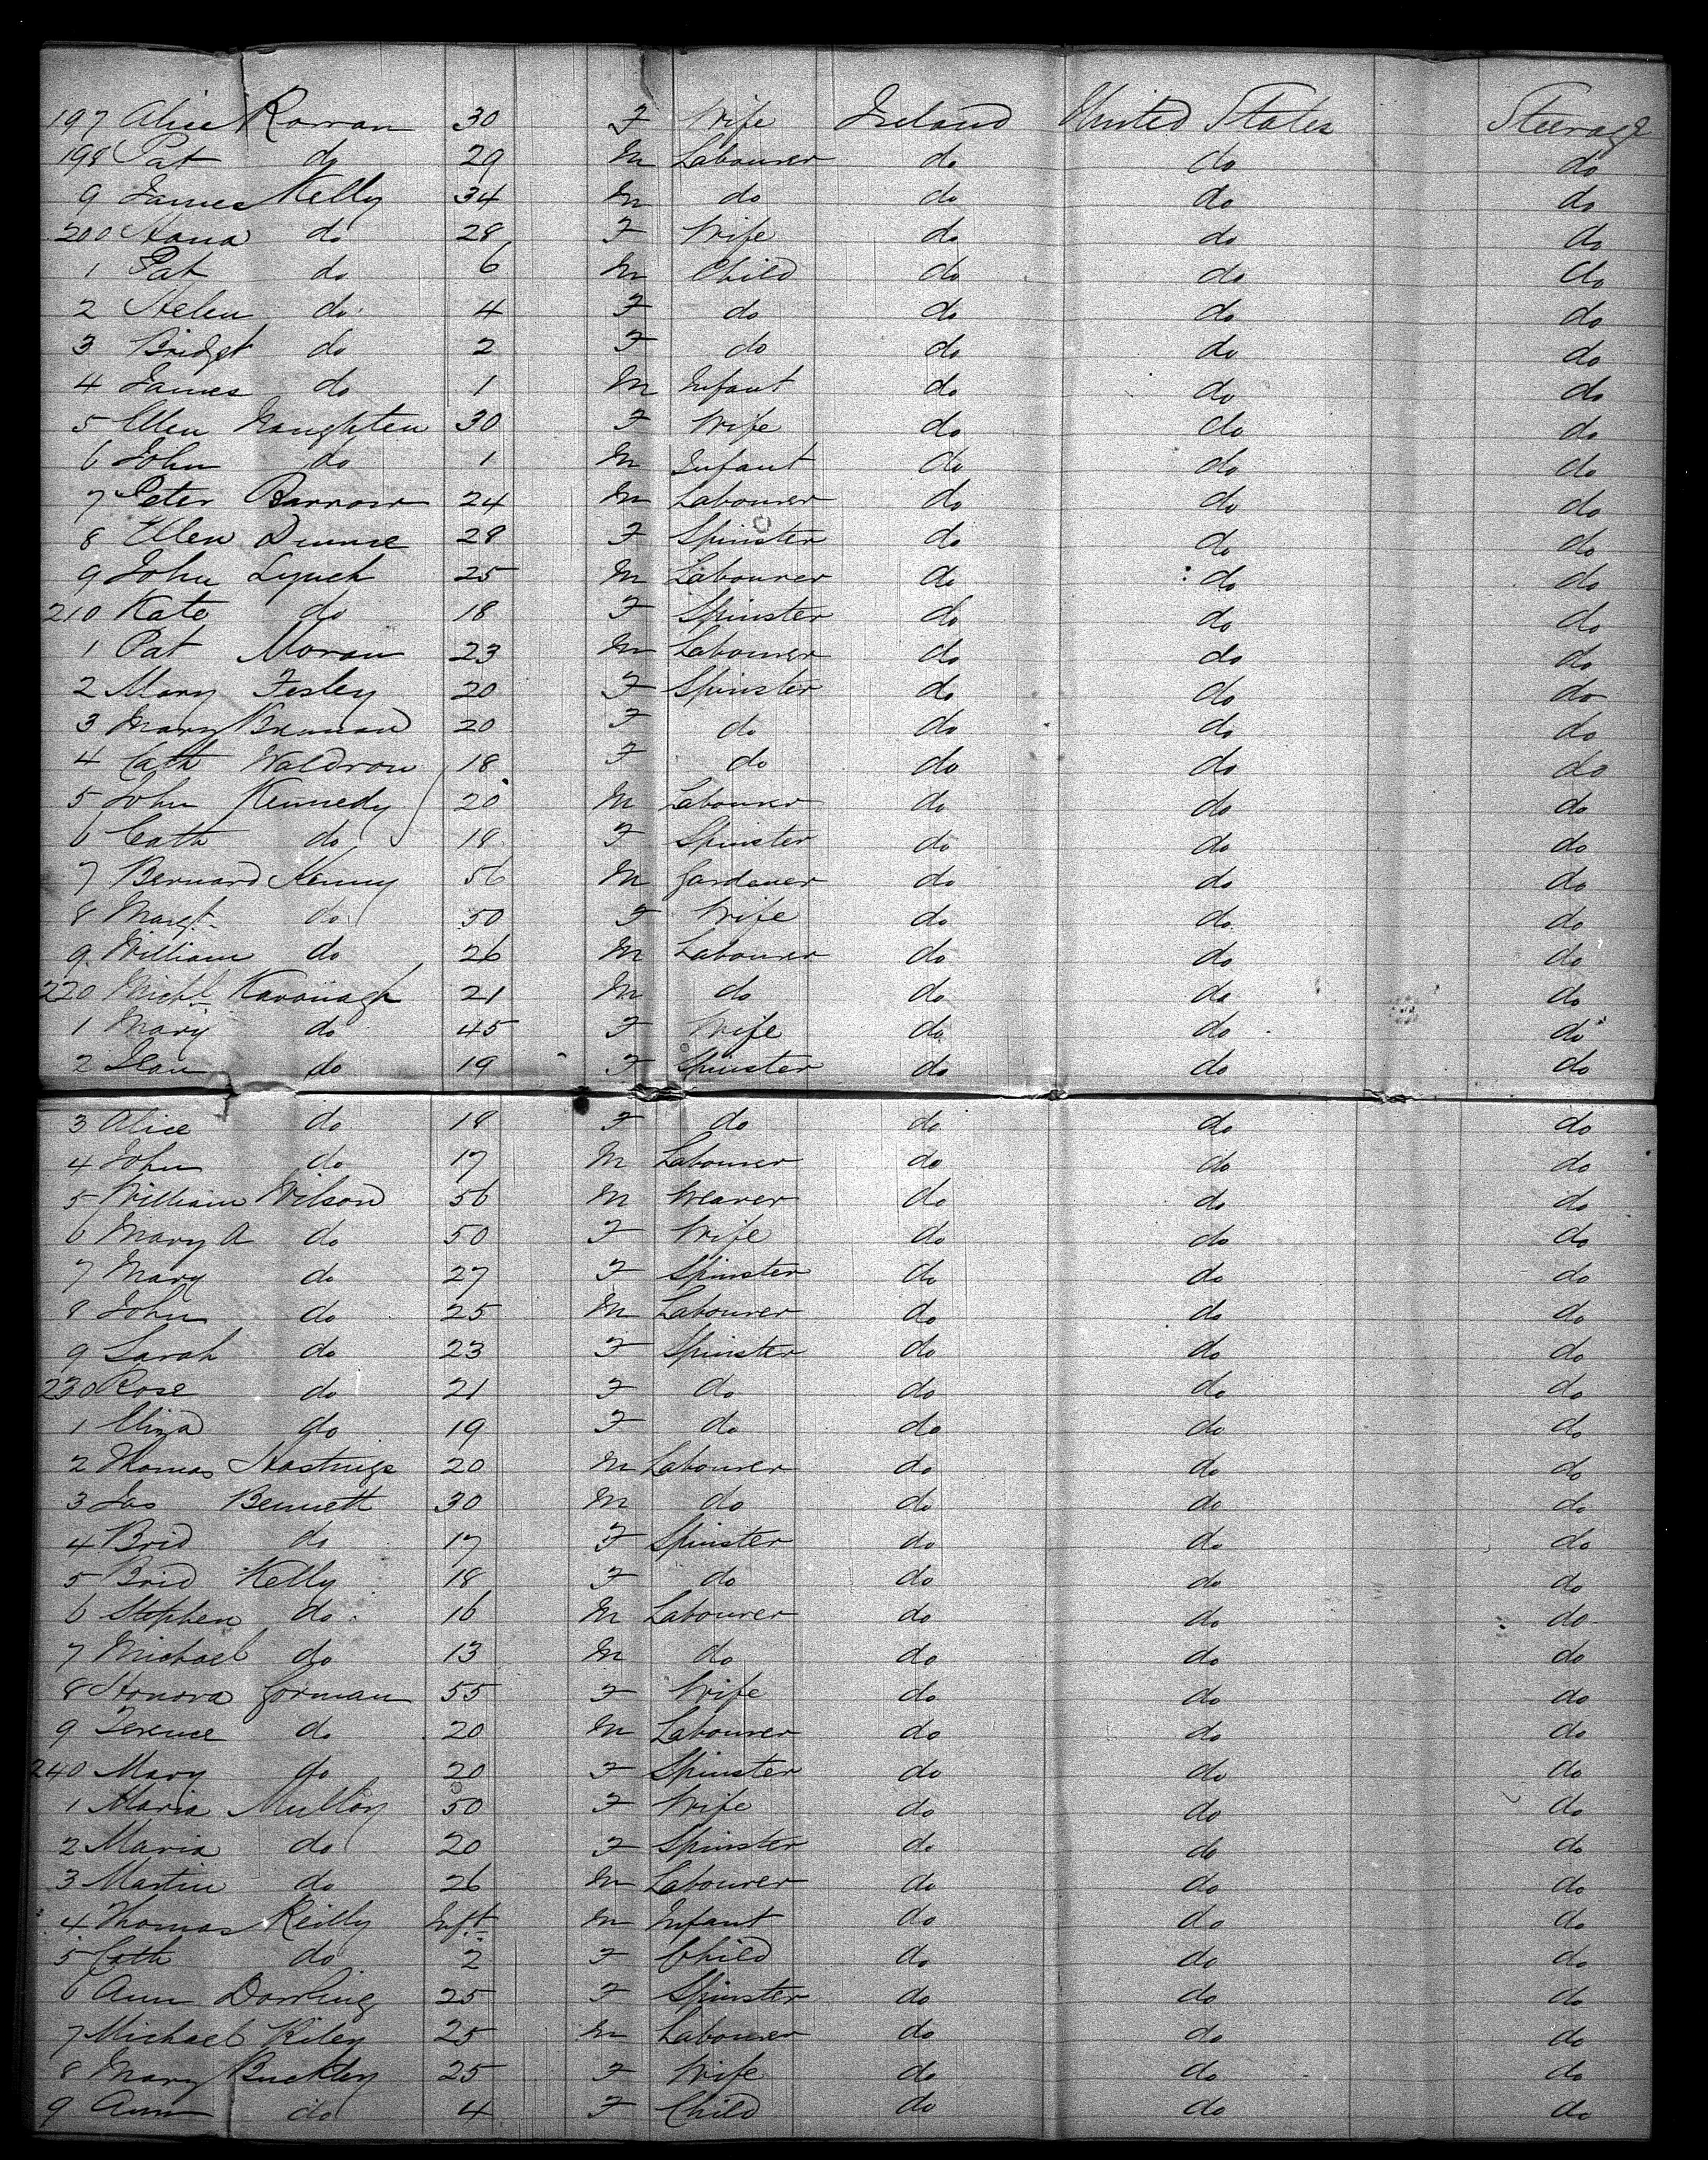 197 Alice Rowan 30 F Wife Ireland United States Steerage
198 Pat do 29 M Labourer do do do
9 James Kelly 34 M do do do do
200 Hana do 28 F Wife do do do
1 Pat do 6 M Child do do do
2 Helen do 4 F do do do do
3 Bridget do 2 F do do do do
4 James do 1 M Infant do do do
5 Ellen Naughten 30 F Wife do do do
6 John do 1 M Infant do do do
7 Peter Barrow 24 M Labourer do do do
8 Ellen Dunne 28 F Spinster do do do
9 John Lynch 25 M Labourer do do do
210 Kate do 18 F Spinster do do do
1 Pat Moran 23 M Labourer do do do
2 Mary Fesley 20 F Spinster do do do
3 Mary Brennan 20 F do do do do
4 Cath Waldron 18 F do do do do
5 John Kennedy 20 M Labourer do do do
6 Cath do 18 F Spinster do do do
7 Bernard Kenny 56 M Gardener do do do
8 Margt do 50 F Wife do do do
9 William do 26 M Labourer do do do
220 Michl Kavanagh 21 M do do do do
1 Mary do 45 F Wife do do do
2 do 19 F Spinster do do do
3 Alice do 18 F do do do do
4 John do 17 M Labourer do do do
5 William Wilson 56 M Weaver do do do
6 Mary A do 50 F Wife do do do
7 Mary do 27 F Spinster do do do
8 John do 25 M Labourer do do do
9 Sarah do 23 F Spinster do do do
230 Rose do 21 F do do do do
1 Eliza do 19 F do do do do
2 Thomas Hastings 20 M Labourer do do do
3 Jas Bennett 30 M do do do do
4 Brid do 17 F Spinster do do do
5 Brid Kelly 18 F do do do do
6 Stephen do 16 M Labourer do do do
7 Michael do 13 M do do do do
8 Honora Gorman 55 F Wife do do do
9 Terence do 20 M Labourer do do do
240 Mary do 20 F Spinster do do do
1 Maria Mulloy 50 F Wife do do do
2 Maria do 20 F Spinster do do do
3 Martin do 26 M Labourer do do do
4 Thomas Reilly Inft M Infant do do do
5 Cath do 2 F Child do do do
6 Ann Dowling 25 F Spinster do do do
7 Michael Kiley 25 M Labourer do do do
8 Mary Buckley 25 F Wife do do do
9 Ann do 4 F Child do do do